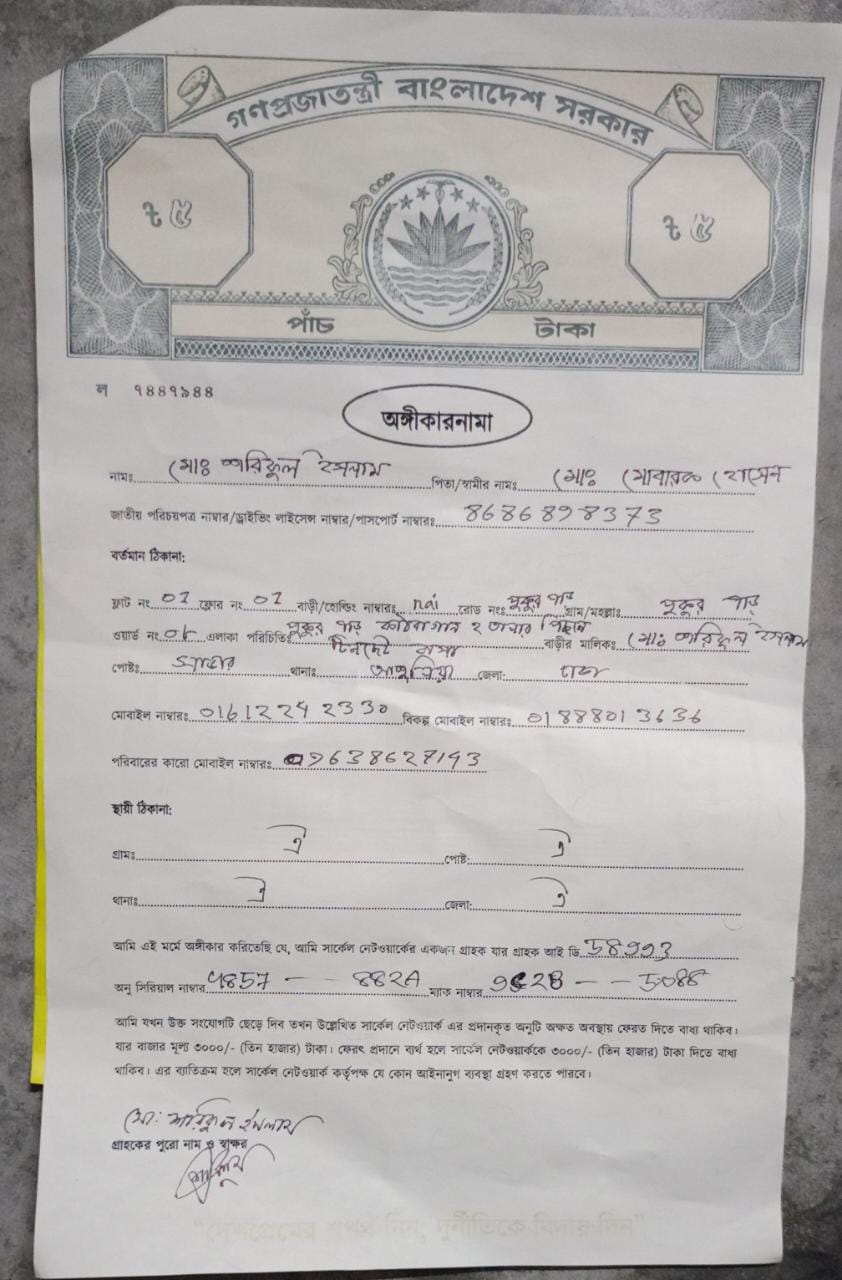 গণপ্রজাতন্ত্রী বাংলাদেশ সরকার
৳ ৫ ৳ ৫
পাঁচ টাকা
ল ৭৪৪৭৯৪৪
অঙ্গীকারনামা
নামঃ মোঃ শরিফুল ইসলাম পিতা/স্বামীর নামঃ মোঃ মোবারক হোসেন
জাতীয় পরিচয়পত্র নাম্বার/ড্রাইভিং লাইসেন্স নাম্বার/পাসপোর্ট নাম্বারঃ 8686898373
বর্তমান ঠিকানা:
ফ্লাট নং 01 ফ্লোর নং 01 বাড়ী/হোল্ডিং নাম্বারঃ nai রোড নংঃ পুকুর পাড় গ্রাম/মহল্লাঃ পুকুর পাড়
ওয়ার্ড নং এলাকা পরিচিতিঃ পুকুর পাড় কাঠবাগান পিছনে বাড়ীর মালিকঃ মোঃ শরিফুল ইসলাম
পোষ্টঃ সাভার থানাঃ আশুলিয়া জেলা: ঢাকা
মোবাইল নাম্বারঃ 01612242330 বিকল্প মোবাইল নাম্বারঃ 01888013636
পরিবারের কারো মোবাইল নাম্বারঃ 09638627193
স্থায়ী ঠিকানা:
গ্রামঃ ঐ পোষ্ট: ঐ
থানাঃ ঐ জেলা: ঐ
আমি এই মর্মে অঙ্গীকার করিতেছি যে, আমি সার্কেল নেটওয়ার্কের একজন গ্রাহক যার গ্রাহক আই ডি 58993
অনু সিরিয়াল নাম্বার 4857 -- 882A ম্যাক নাম্বার 9C2B -- 5088
আমি যখন উক্ত সংযোগটি ছেড়ে দিব তখন উল্লেখিত সার্কেল নেটওয়ার্ক এর প্রদানকৃত অনুটি অক্ষত অবস্থায় ফেরত দিতে বাধ্য থাকিব।
যার বাজার মূল্য ৩০০০/- (তিন হাজার) টাকা। ফেরৎ প্রদানে ব্যর্থ হলে সার্কেল নেটওয়ার্ককে ৩০০০/- (তিন হাজার) টাকা দিতে বাধ্য
থাকিব। এর ব্যতিক্রম হলে সার্কেল নেটওয়ার্ক কর্তৃপক্ষ যে কোন আইনানুগ ব্যবস্থা গ্রহণ করতে পারবে।
মো: শরিফুল ইসলাম
গ্রাহকের পুরো নাম ও স্বাক্ষর
"দেশপ্রেমের শপথ নিন, দুর্নীতিকে বিদায় দিন"